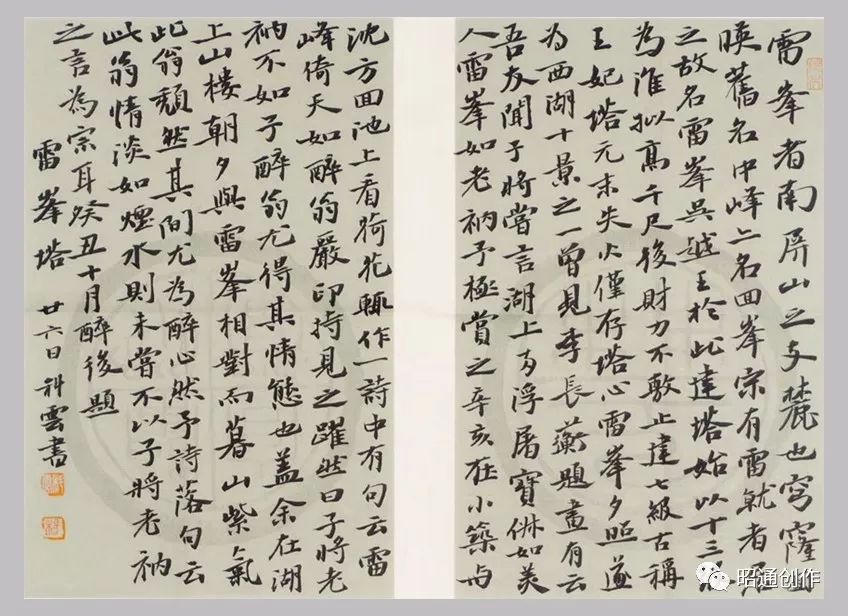 雷峯者南屏山之支麓也穹窿
暎舊名中峰亦名回峯宗有雷就者居
之故名雷峯吳越王於此建塔始以十三級
為准拟高千尺後財力不敷止建七級古稱
王妃塔元末失火僅存塔心雷峯夕照遂
為西湖十景之一曾見李長蘅題畫有云
吾友聞子將嘗言湖上两浮屠寶俶如美
人雷峯如老衲予極賞之辛亥在小築与
沈方回池上看荷花輒作一詩中有句云雷
峰倚天如醉翁嚴印持見之躍然曰子將老
衲不如子醉翁尤得其情態也盖余在湖
上山樓朝夕與雷峯相對而暮山紫氣
此翁頹然其间尤為醉心然予詩落句云
此翁情淡如煙水則未嘗不以子將老衲
之言為宗耳癸丑十月醉後題
雷峯塔 廿六日 科雲書
昭通创作